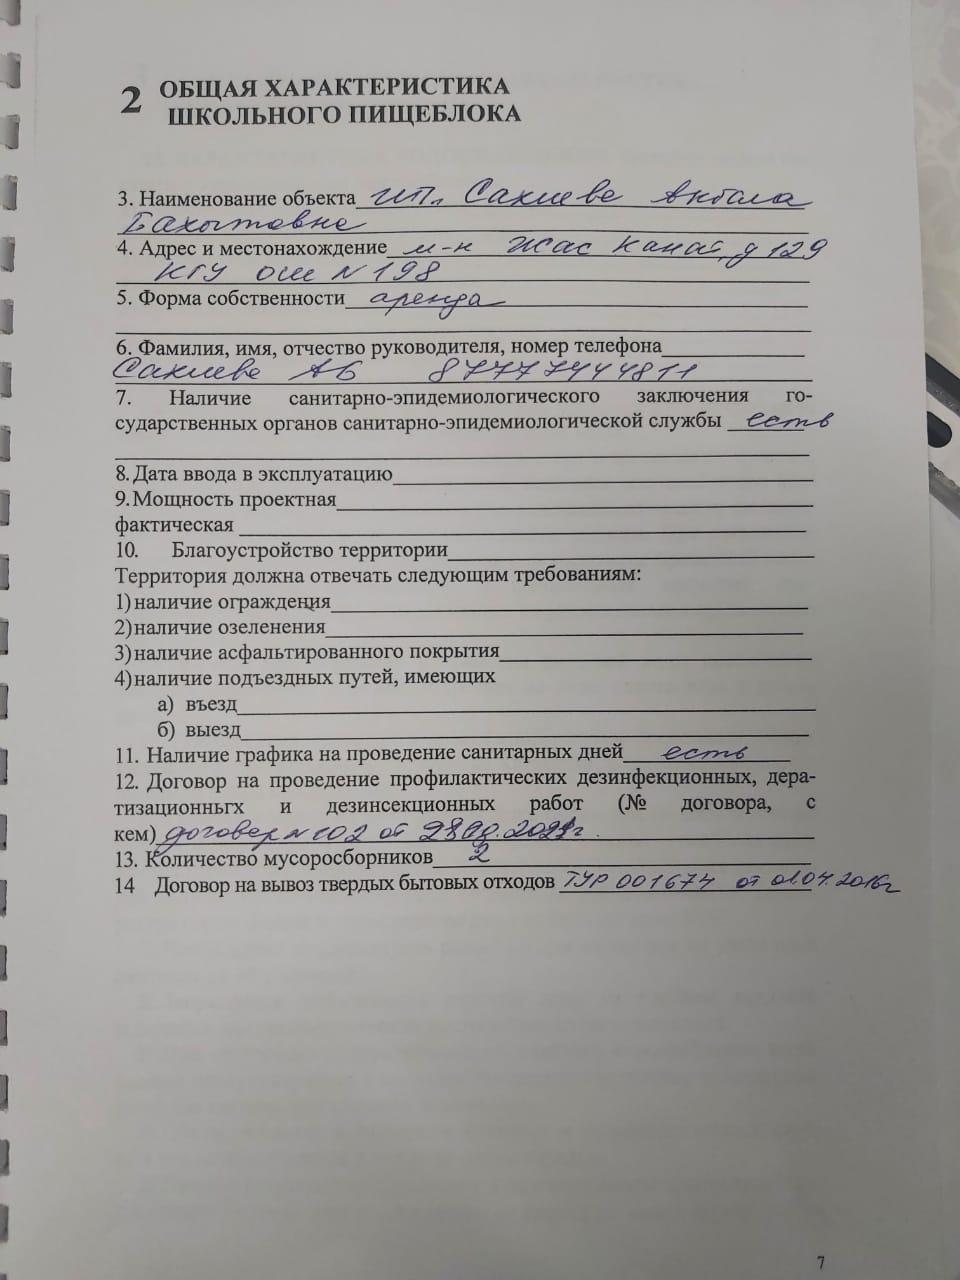 2 ОБЩАЯ ХАРАКТЕРИСТИКА
ШКОЛЬНОГО ПИЩЕБЛОКА
3. Наименование объекта ИП. Сакиева Акбала
Бахытовна
4. Адрес и местонахождение м-н Жас Канат, д 129
КГУ ОШ N 198
5. Форма собственности аренда
6. Фамилия, имя, отчество руководителя, номер телефона
Сакиева АБ 87777444811
7. Наличие санитарно-эпидемиологического заключения го-
сударственных органов санитарно-эпидемиологической службы есть
8. Дата ввода в эксплуатацию
9. Мощность проектная
фактическая
10. Благоустройство территории
Территория должна отвечать следующим требованиям:
1) наличие ограждения
2) наличие озеленения
3) наличие асфальтированного покрытия
4) наличие подъездных путей, имеющих
а) въезд
б) выезд
11. Наличие графика на проведение санитарных дней есть
12. Договор на проведение профилактических дезинфекционных, дера-
тизационньгх и дезинсекционных работ (№ договора, с
кем) договор N 102 от
13. Количество мусоросборников 2
14 Договор на вывоз твердых бытовых отходов ТУР 001674 от 01.04.2016г
7